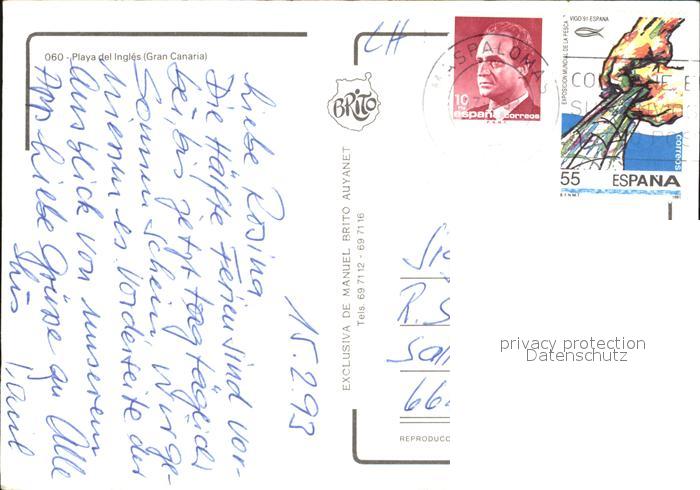 060 - Playa del Inglés (Gran Canaria)
15.2.93
Liebe Rosina
Die Hälfte Ferien sind vor-
bei, bis jetzt tagtäglich
Sonnenschein. Wir ge-
niessen es. Vorderseite der
Ausblick von unserem
App. Liebe Grüsse an Alle
BRITO
EXCLUSIVA DE MANUEL BRITO AUYANET
Tels. 69 71 12 - 69 71 16
CH
MASPALOMAS
10
españa correos
VIGO '91 ESPAÑA
EXPOSICION MUNDIAL DE LA PESCA
correos
55 ESPAÑA
R. S
66
REPRODUCC
privacy protection
Datenschutz